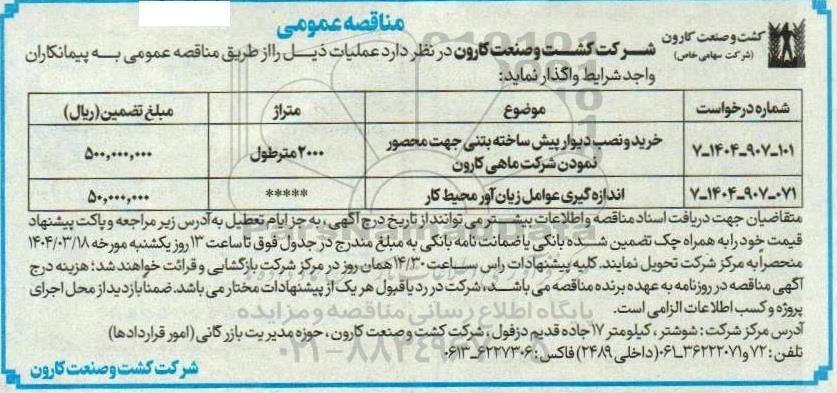 مناقصه عمومی
کشت و صنعت کارون
(شرکت سهامی خاص)
شرکت کشت و صنعت کارون در نظر دارد عملیات ذیل را از طریق مناقصه عمومی به پیمانکاران
واجد شرایط واگذار نماید:
شماره درخواست موضوع متراژ مبلغ تضمین (ریال)
۷_۱۴۰۴_۹۰۷_۱۰۱ خرید و نصب دیوار پیش ساخته بتنی جهت محصور نمودن شرکت ماهی کارون ۲۰۰۰ مترطول ۵۰۰,۰۰۰,۰۰۰
۷_۱۴۰۴_۹۰۷_۰۷۱ اندازه گیری عوامل زیان آور محیط کار ***** ۵۰,۰۰۰,۰۰۰
متقاضیان جهت دریافت اسناد مناقصه و اطلاعات بیشتر می توانند از تاریخ درج آگهی، به جز ایام تعطیل به آدرس زیر مراجعه و پاکت پیشنهاد
قیمت خود را به همراه چک تضمین شده بانکی یا ضمانت نامه بانکی به مبلغ مندرج در جدول فوق تا ساعت ۱۳ روز یکشنبه مورخه ۱۴۰۴/۰۳/۱۸
منحصراً به مرکز شرکت تحویل نمایند. کلیه پیشنهادات راس ساعت ۱۴/۳۰ همان روز در مرکز شرکت بازگشایی و قرائت خواهند شد؛ هزینه درج
آگهی مناقصه در روزنامه به عهده برنده مناقصه می باشد، شرکت در رد یا قبول هر یک از پیشنهادات مختار می باشد. ضمناً بازدید از محل اجرای
پروژه و کسب اطلاعات الزامی است.
آدرس مرکز شرکت: شوشتر، کیلومتر ۱۷ جاده قدیم دزفول، شرکت کشت و صنعت کارون، حوزه مدیریت بازرگانی (امور قراردادها)
تلفن: ۷۲ و ۳۶۲۲۲۰۷۱_۰۶۱ (داخلی ۲۴۸۹) فاکس: ۶۲۲۷۳۰۶_۰۶۱۳
شرکت کشت و صنعت کارون
ParsNamadData
پایگاه اطلاع رسانی مناقصه و مزایده